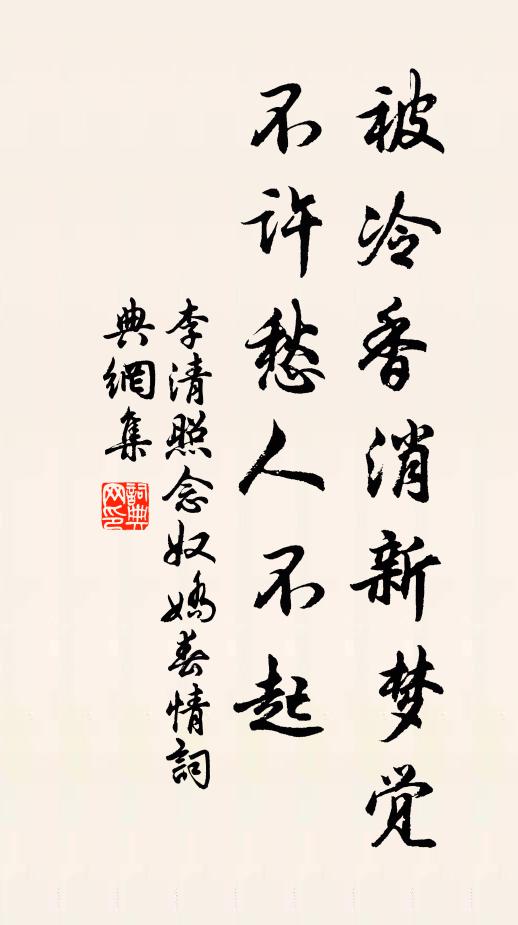 被冷香消新梦觉
不许愁人不起
李清照念奴嬌春情詞
典網集
詞典网印